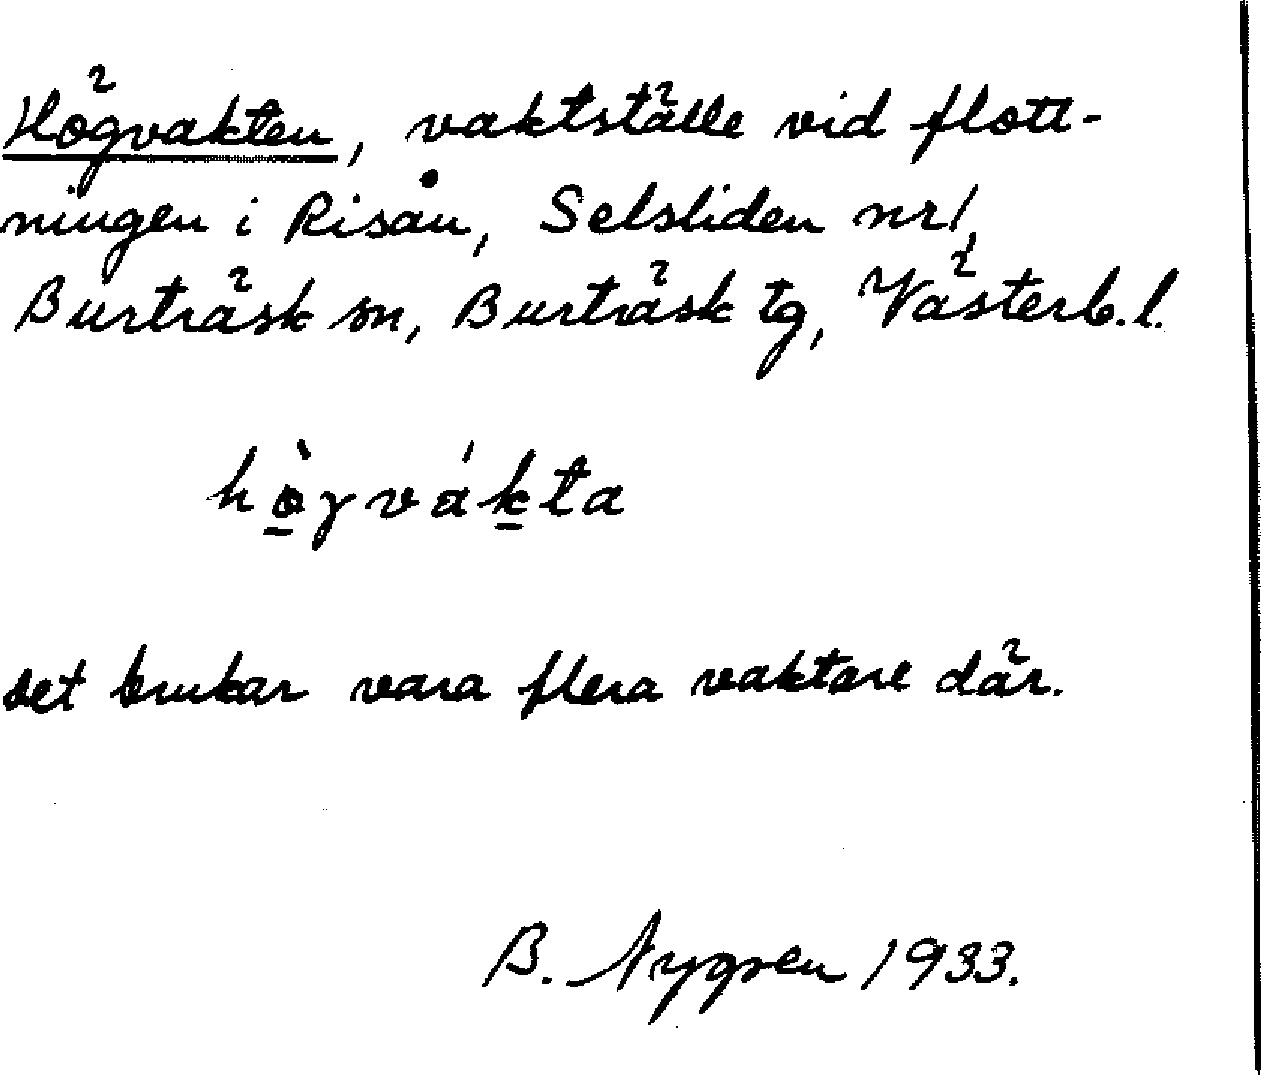 Högvakten, vaktställe vid flott-
ningen i Risån, Selsliden nr 1,
Burträsk sn, Burträsk tg, Västerb. l.
hò̱γváḵta
det brukar vara flera vaktare där.
B. Nygren 1933.